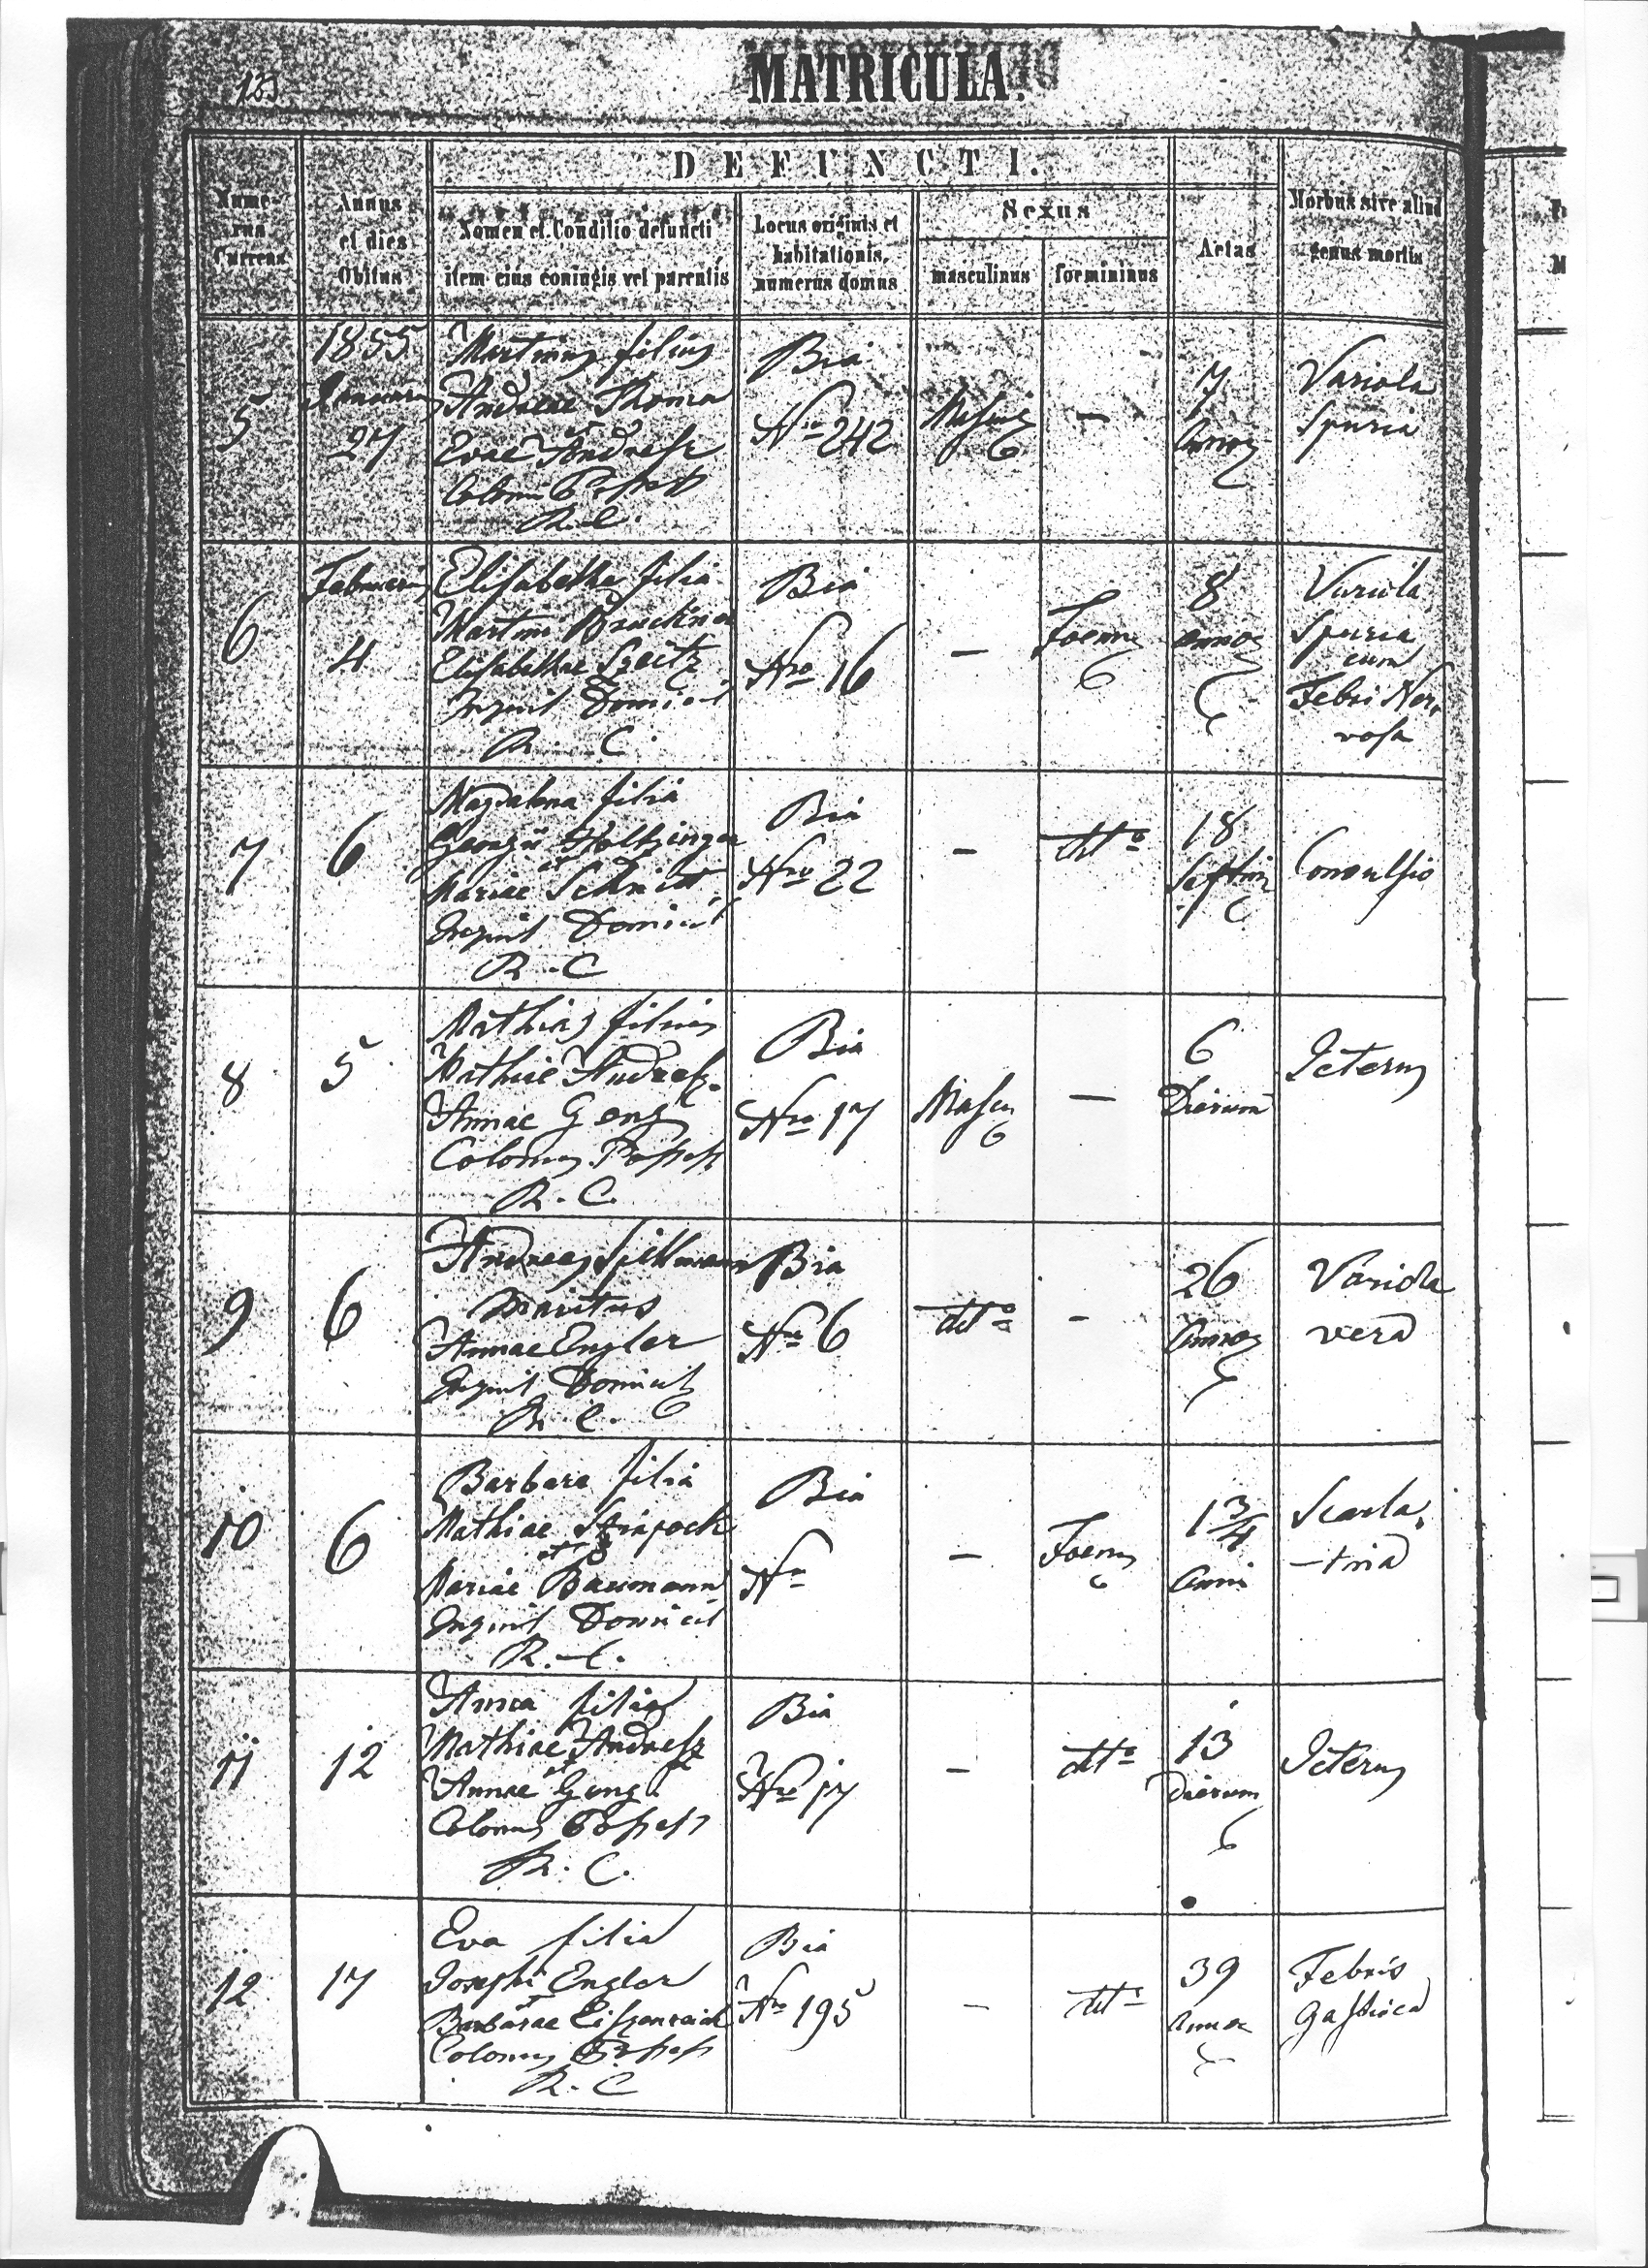 MATRICULA.
DEFUNCTI.
Nume-
rus
Currens
Annus
et dies
Obitus
Nomen et Conditio defuncti
item eius coniugis vel parentis
Locus originis et
habitationis,
numerus domus
Sexus
masculinus
foemininus
Aetas
Morbus sive aliud
genus mortis
5
1855
Januarii
27
Martinus filius
Andreae Thoma
et
Evae Andresz
R. C.
Bia
Nro 242
Mascu
-
7
annor
Variola
Spuria
6
Februarii
4
Elisabetha filia
Martini Bruckner
Elisabethae Szeitz
Inquil Domicil
R. C.
Bia
Nro 16
-
Foemi
8
annor
Variola
Spuria
cum
Febri Ner,
vosa
7
6
Magdalena filia
Georgii Holtzinger
et
Mariae Schmidt
Inquil Domicil
R. C
Bia
Nro 22
-
ditto
18
Septim
Convulsio
8
5
Mathias filius
Mathiae Andresz
Annae Geng
Colonus Possess
R. C.
Bia
Nro 17
Mascu
-
6
Dierum
Icterus
9
6
Andreas Spillmann
maritus
Annae Engler
Inquil Domicil
R. C.
Bia
Nro 6
ditto
-
26
Annor
Variola
vera
10
6
Barbara filia
Mathiae
et
Mariae Baumann
Inquil Domicil
R. C.
Bia
Nro
-
Foemi
1 3/4
Anni
Scarla,
-tina
11
12
Anna filia
Mathiae Andresz
et
Annae Geng
Colonus Possess
R. C.
Bia
Nro 17
-
ditto
13
Dierum
Icterus
12
17
Eva filia
Josephi Engler
et
Barbarae Eiszenreich
Colonus Possess
R. C
Bia
Nro 195
-
ditto
39
Annor
Febris
Gastrica